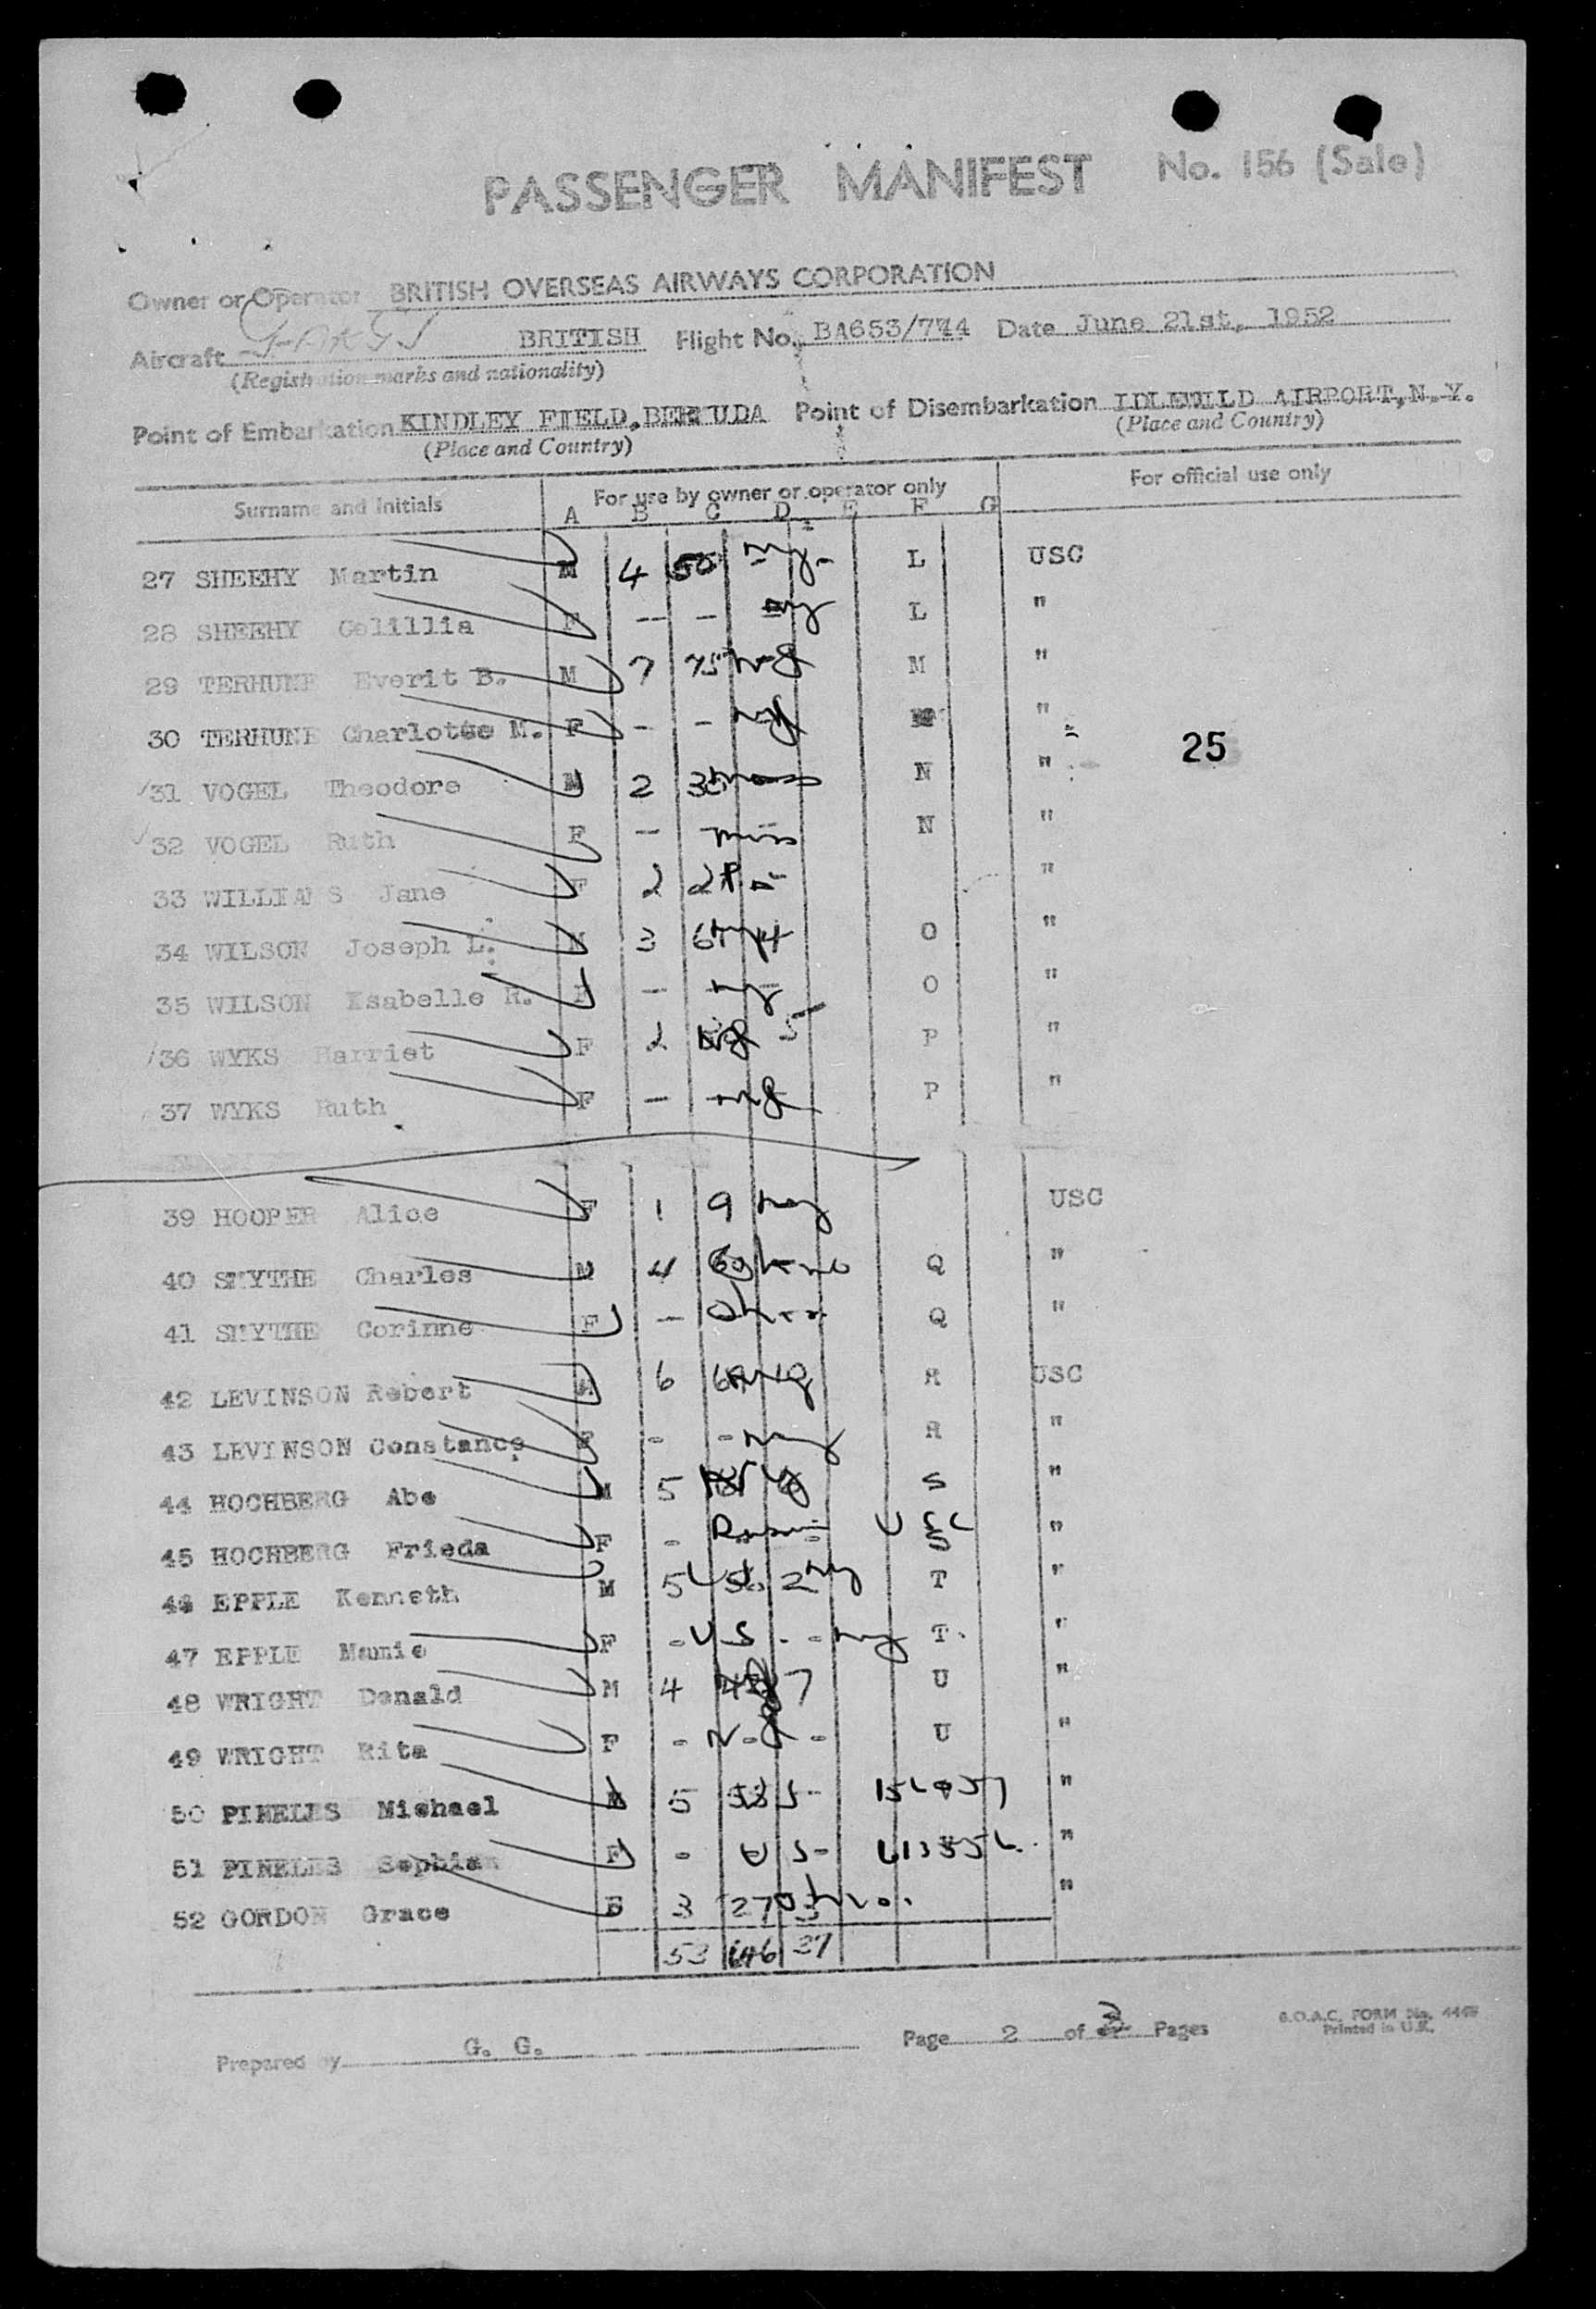 PASSENGER MANIFEST No. 156 (Sale)
Owner or Operator BRITISH OVERSEAS AIRWAYS CORPORATION
Aircraft BRITISH Flight No. BA653/774 Date June 21st, 1952
(Registration marks and nationality)
Point of Embarkation KINDLEY FIELD, BERMUDA Point of Disembarkation IDLEWILD AIRPORT, N.Y.
(Place and Country) (Place and Country)
Surname and Initials For use by owner or operator only For official use only
A B C D E F G
27 SHEEHY Martin M 4 50 L USC
28 SHEEHY F - - L "
29 TERHUNE Everit B. M 7 75 M "
30 TERHUNE Charlotte M. F - - "
25
31 VOGEL Theodore M 2 N "
32 VOGEL Ruth F - N "
33 WILLIAMS Jane F 2 "
34 WILSON Joseph L. M 3 O "
35 WILSON Isabelle R. F - O "
36 WYKS Harriet F 2 P "
37 WYKS Ruth F - P "
39 HOOPER Alice F 1 9 USC
40 SMYTHE Charles M 4 Q "
41 SMYTHE Corinne F - Q "
42 LEVINSON Robert M 6 R USC
43 LEVINSON Constance F - - R "
44 HOCHBERG Abe M 5 S "
45 HOCHBERG Frieda F - S "
EPPLE Kenneth M 5 T "
47 EPPLE F - U S - - T "
48 WRIGHT Donald M 4 7 U "
49 WRIGHT Rita F - - U "
50 PINELES Michael M 5 "
51 PINELES F - "
52 GORDON Grace F 3 27 "
53 646 37
Prepared by G. G. Page 2 of 3 Pages
B.O.A.C. FORM No.
Printed in U.K.